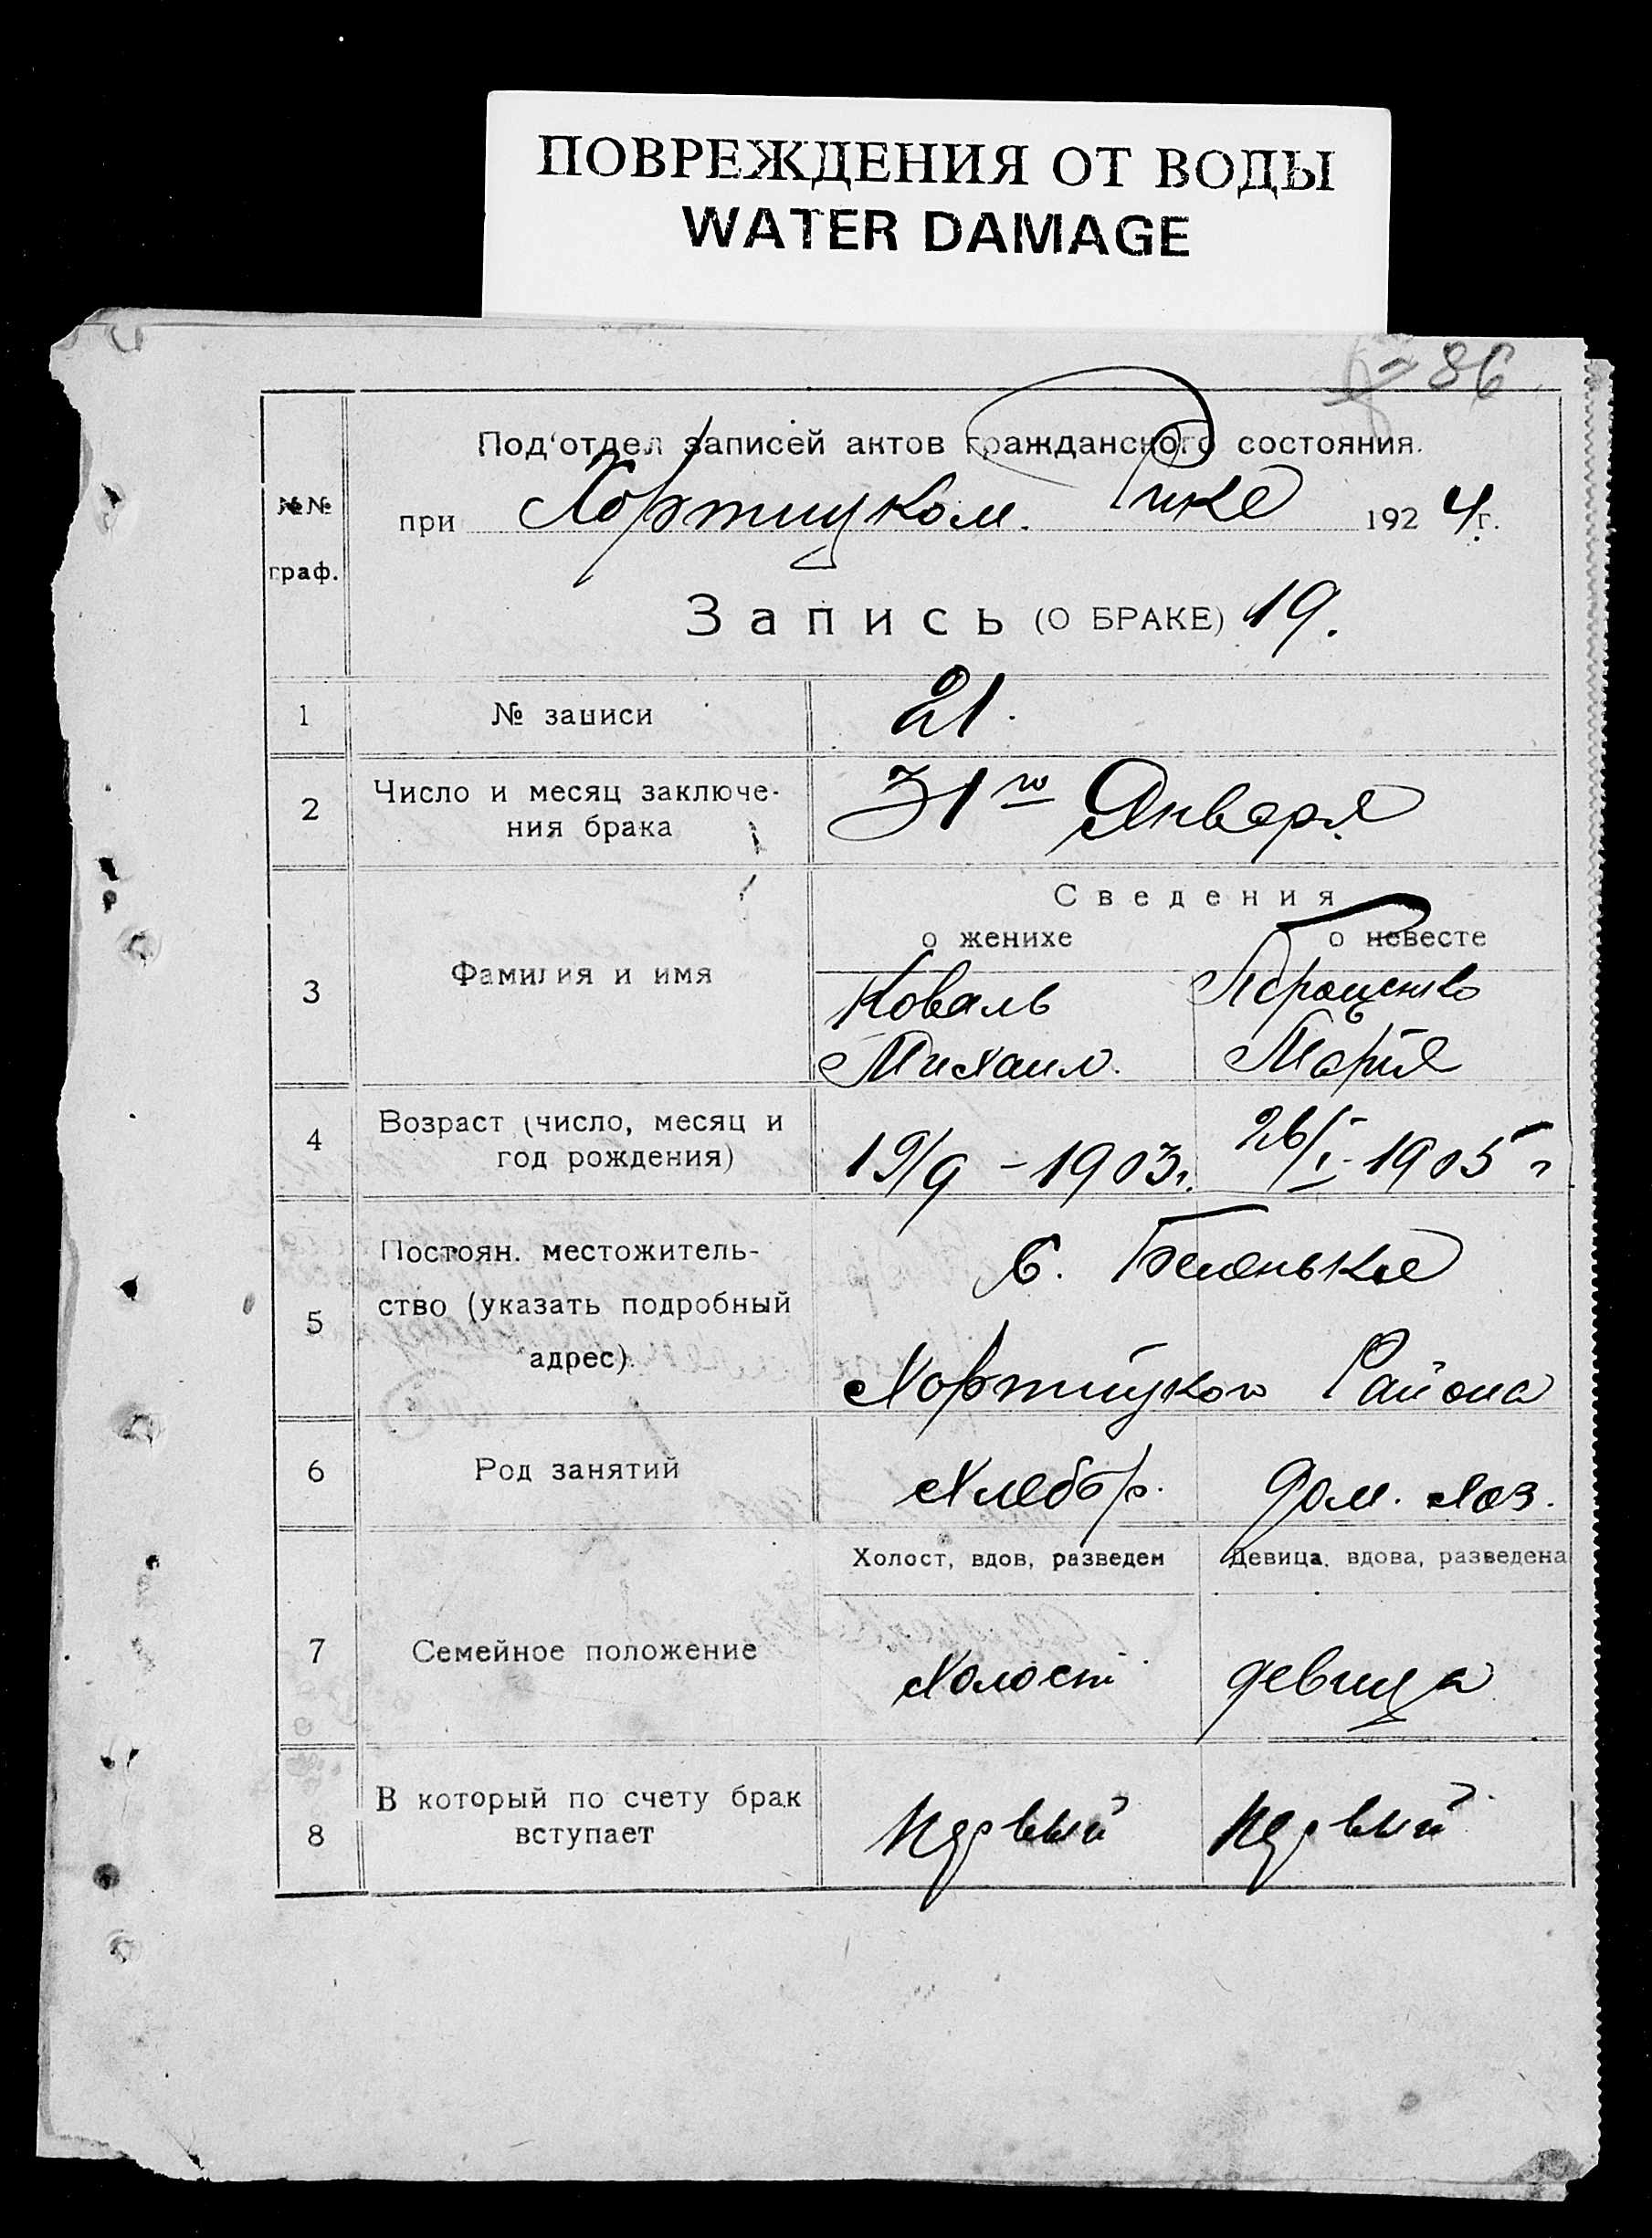 ПОВРЕЖДЕНИЯ ОТ ВОДЫ
WATER DAMAGE
86
№№
граф.
Под'отдел записей актов гражданского состояния.
при Хортицком. Рике 1924 г.
Запись (О БРАКЕ) 19.
1 № записи 21.
2 Число и месяц заключе-
ния брака 31го Января
Сведения
о женихе о невесте
3 Фамилия и имя Коваль
Михаил. Мария
4 Возраст (число, месяц и
год рождения) 19/9 - 1903 г. 26/I - 1905 г
5 Постоян. местожитель-
ство (указать подробный
адрес).
С. Беленькое
Хортицкого Района
6 Род занятий Хлебор. Дом. хоз.
Холост, вдов, разведен Девица, вдова, разведена
7 Семейное положение Холост девица
8 В который по счету брак
вступает Первый Первый